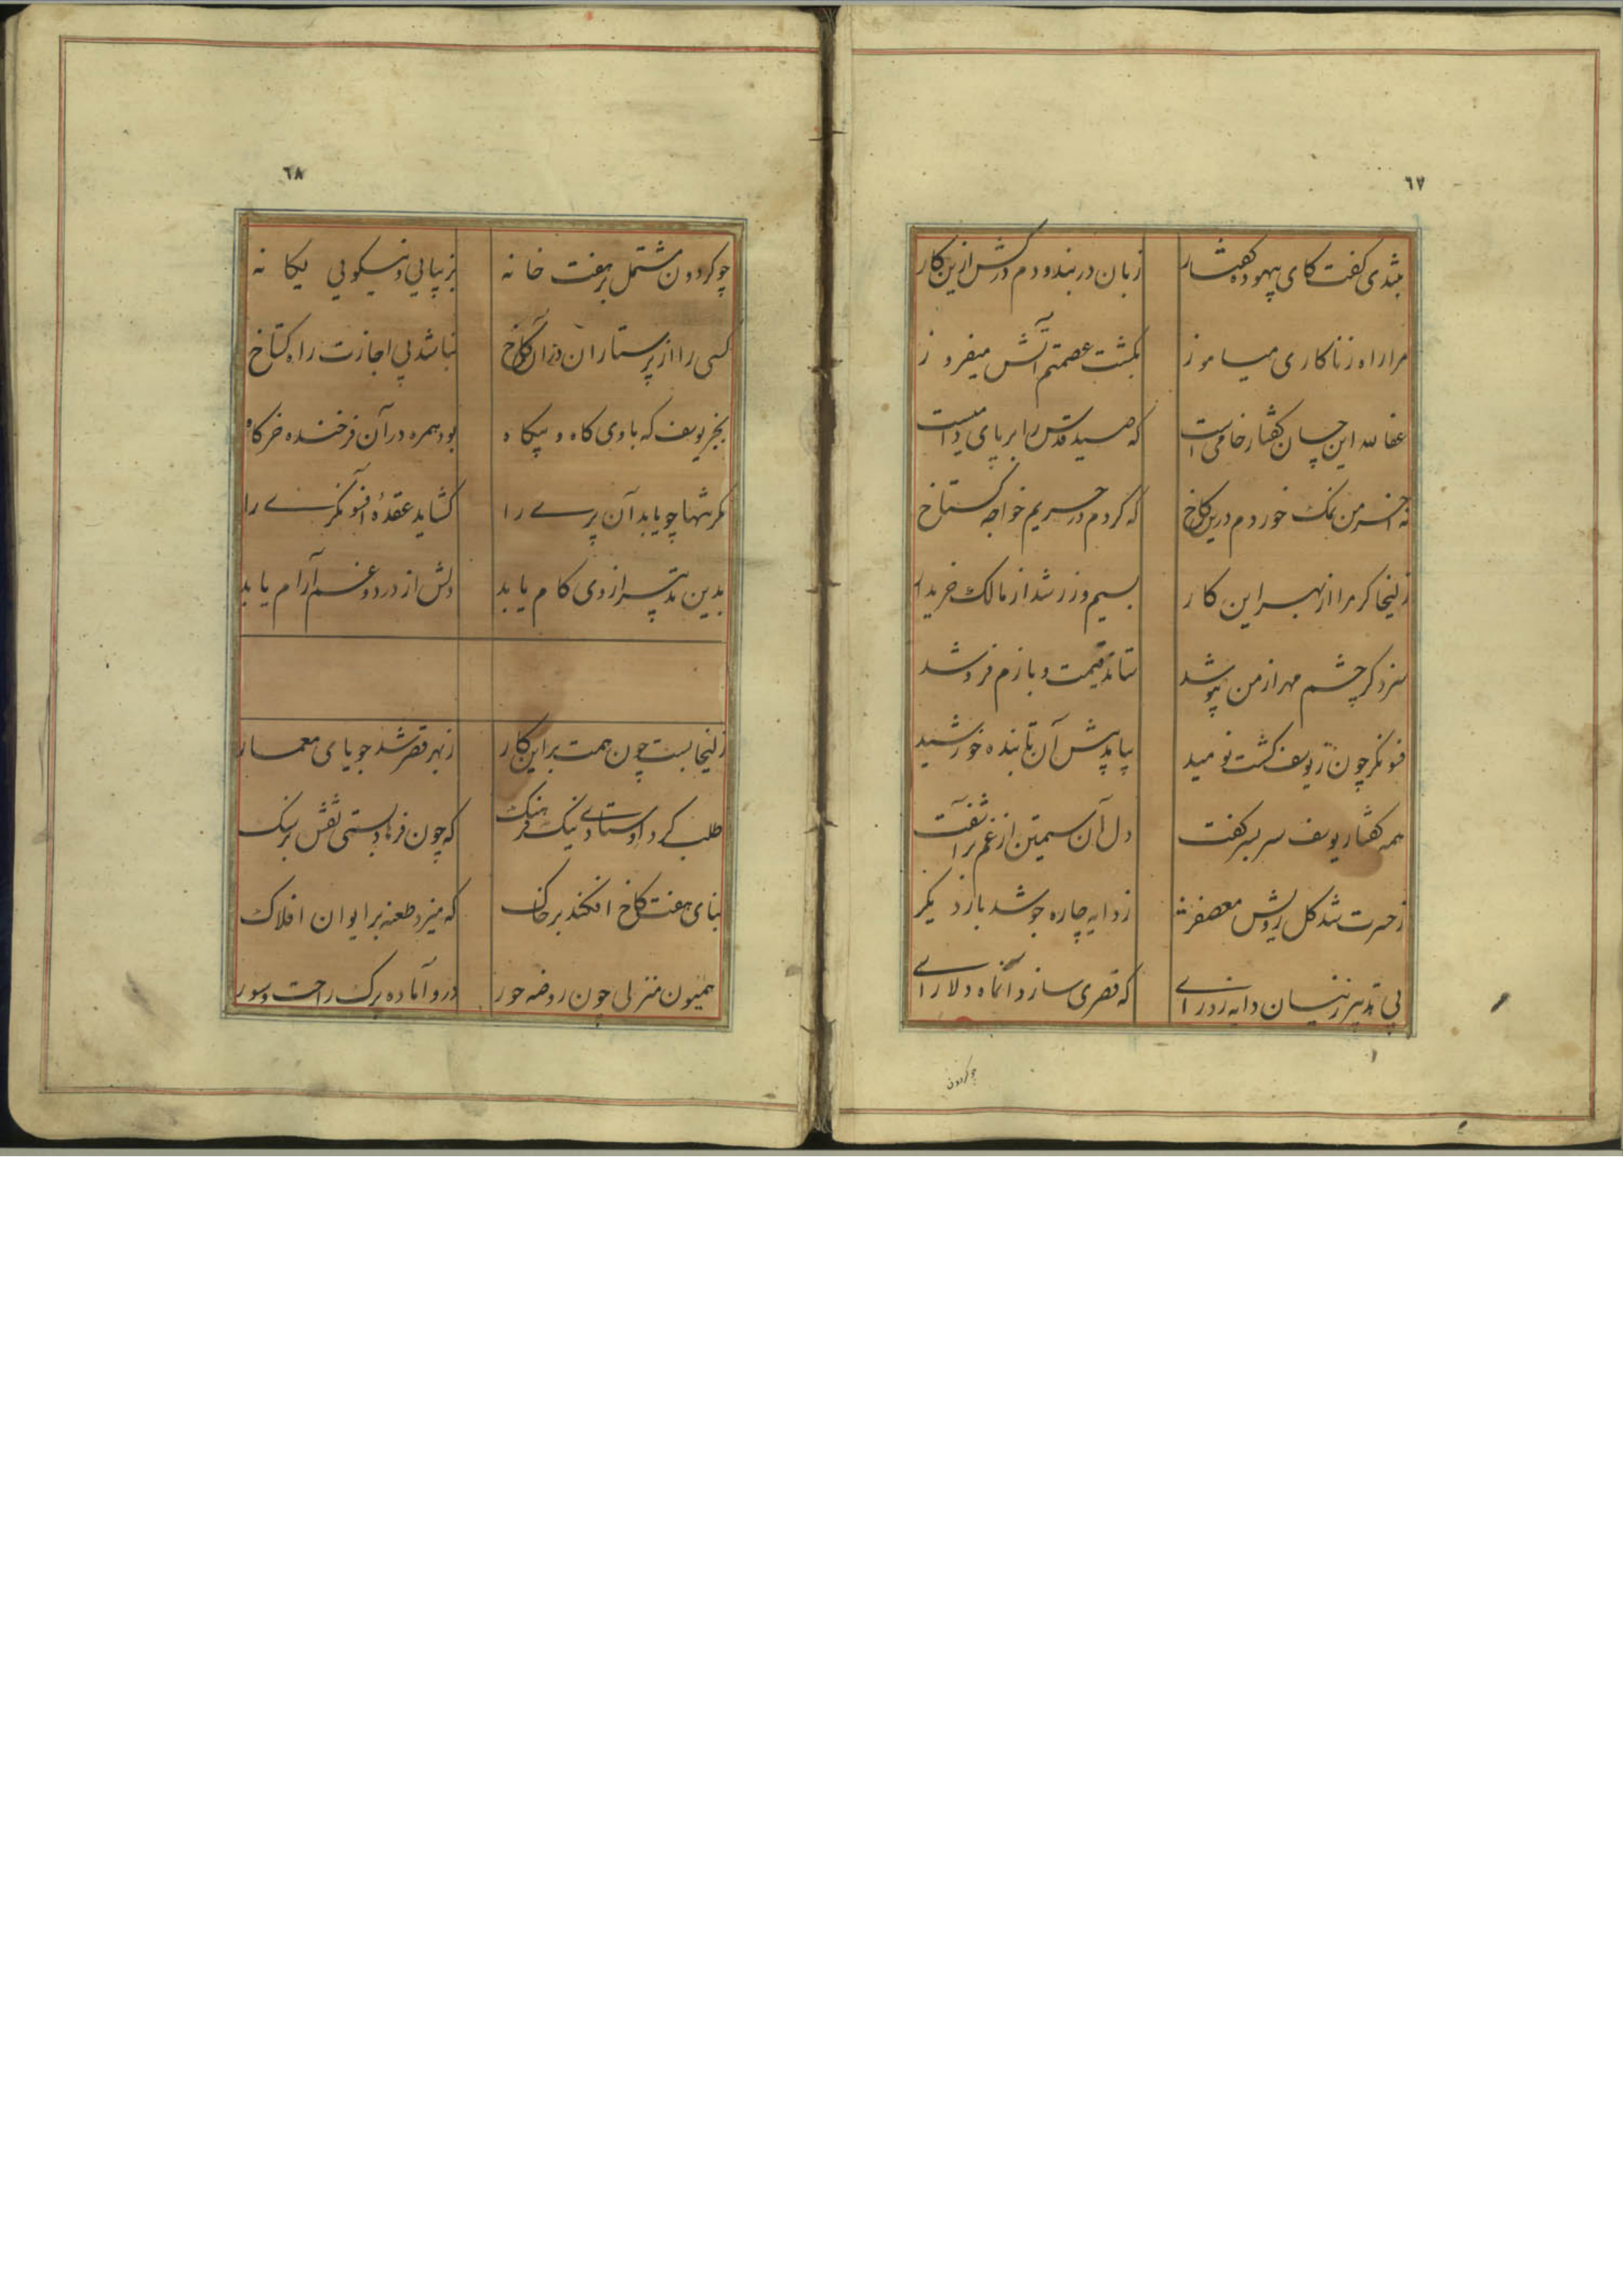 ٦٧
بتندی گفت کای بیهوده گفتار زبان دربند و دم درکش ازین کار
مرا راه زناکاری میاموز بکشت عصمتم آتش میفروز
عفا لله این چسان گفتار خامی است که صید قدس را بر پای دامیست
نه آخر من نمک خوردم درین کاخ که گردم در حریم خواجه گستاخ
زلیخا گر مرا از بهر این کار بسیم و زر شد از مالک خریدار
سزد گر چشم مهر از من بپوشد ستاند قیمت و بازم فروشد
فسونگر چون ز یوسف گشت نومید بیامد پیش آن تابنده خورشید
همه گفتار یوسف سر بسر گفت دل آن سیمتن از غم برآشفت
ز حسرت شد گل رویش معصفر ز دایه چاره جو شد بار دیگر
پی تدبیر زینسان دایه زد رای که قصری سازد آنماه دلارای
چو گردون
٦٨
چو گردون مشتمل بر هفت خانه بزیبایی و نیکویی یگانه
کسی را از پرستاران در آن کاخ نباشد بی اجازت راه گستاخ
بجز یوسف که با وی گاه و بیگاه بود همره در آن فرخنده خرگاه
مگر تنها چو یابد آن پری را گشاید عقدهٔ افسونگری را
بدین تدبیر از وی کام یابد دلش از درد و غم آرام یابد
زلیخا بست چون همت بر این کار ز بهر قصر شد جویای معمار
طلب کرد اوستادی نیک فرهنگ که چون فرهاد بستی نقش بر سنگ
بنای هفت کاخ افکند بر خاک که میزد طعنه بر ایوان افلاک
همیون منزلی چون روضه حور درو آماده برگ راحت و سور